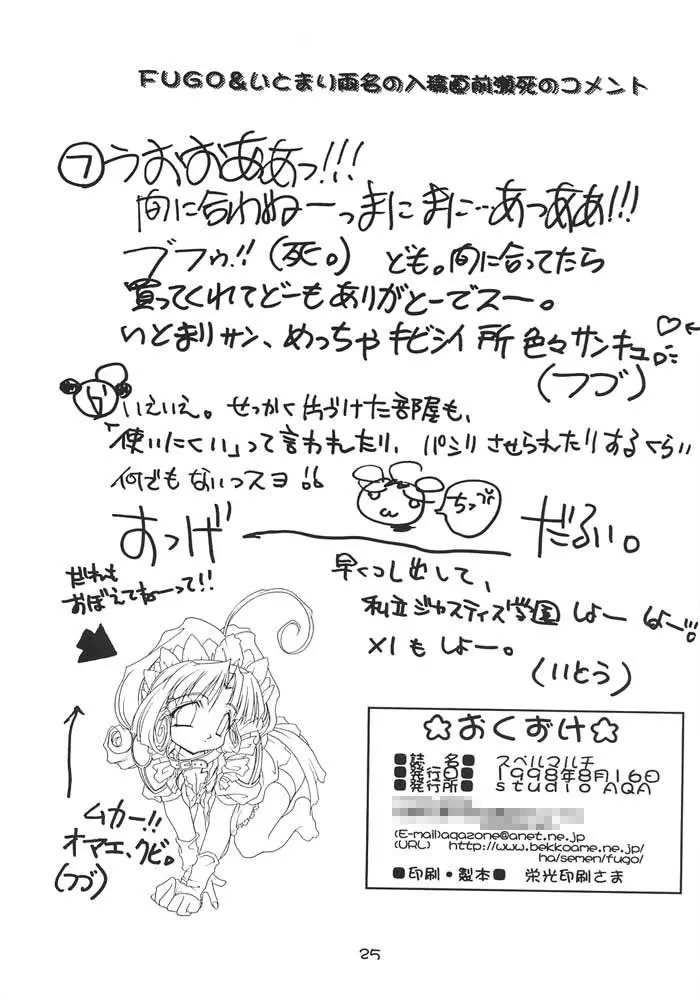 FUGO&いとまり両名の入稿直前瀕死のコメント
フ うおおああっ!!!
間に合わぬーっまにまに…あっああ!!!
ブフゥ!!(死。) ども。間に合ってたら
買ってくれてどーもありがとーでスー。
いとまりサン、めっちゃキビシイ所色々サンキュ
(つづ)
いえいえ。せっかく片づけた部屋も、
「使いにくい」って言われたり、パシリさせられたりするくらい
何でもないっスヨ!!
ちっぷ
おっげーだるい。
だれも
おぼえてねーって!!
早くつし出して、
私立ジャスティス学園しよー しよー!!
×1もしよー。
(いとう)
ムカー!!
オマエ、クビ。
(つづ)
☆おくづけ☆
■誌 名■ スペルマルチ
■発行日■ 1998年8月16日
■発行所■ studio AQA
(E-mail)aqazone@anet.ne.jp
(URL) http://www.bekkoame.ne.jp/
ha/semen/fugo/
■印刷・製本■ 栄光印刷さま
25